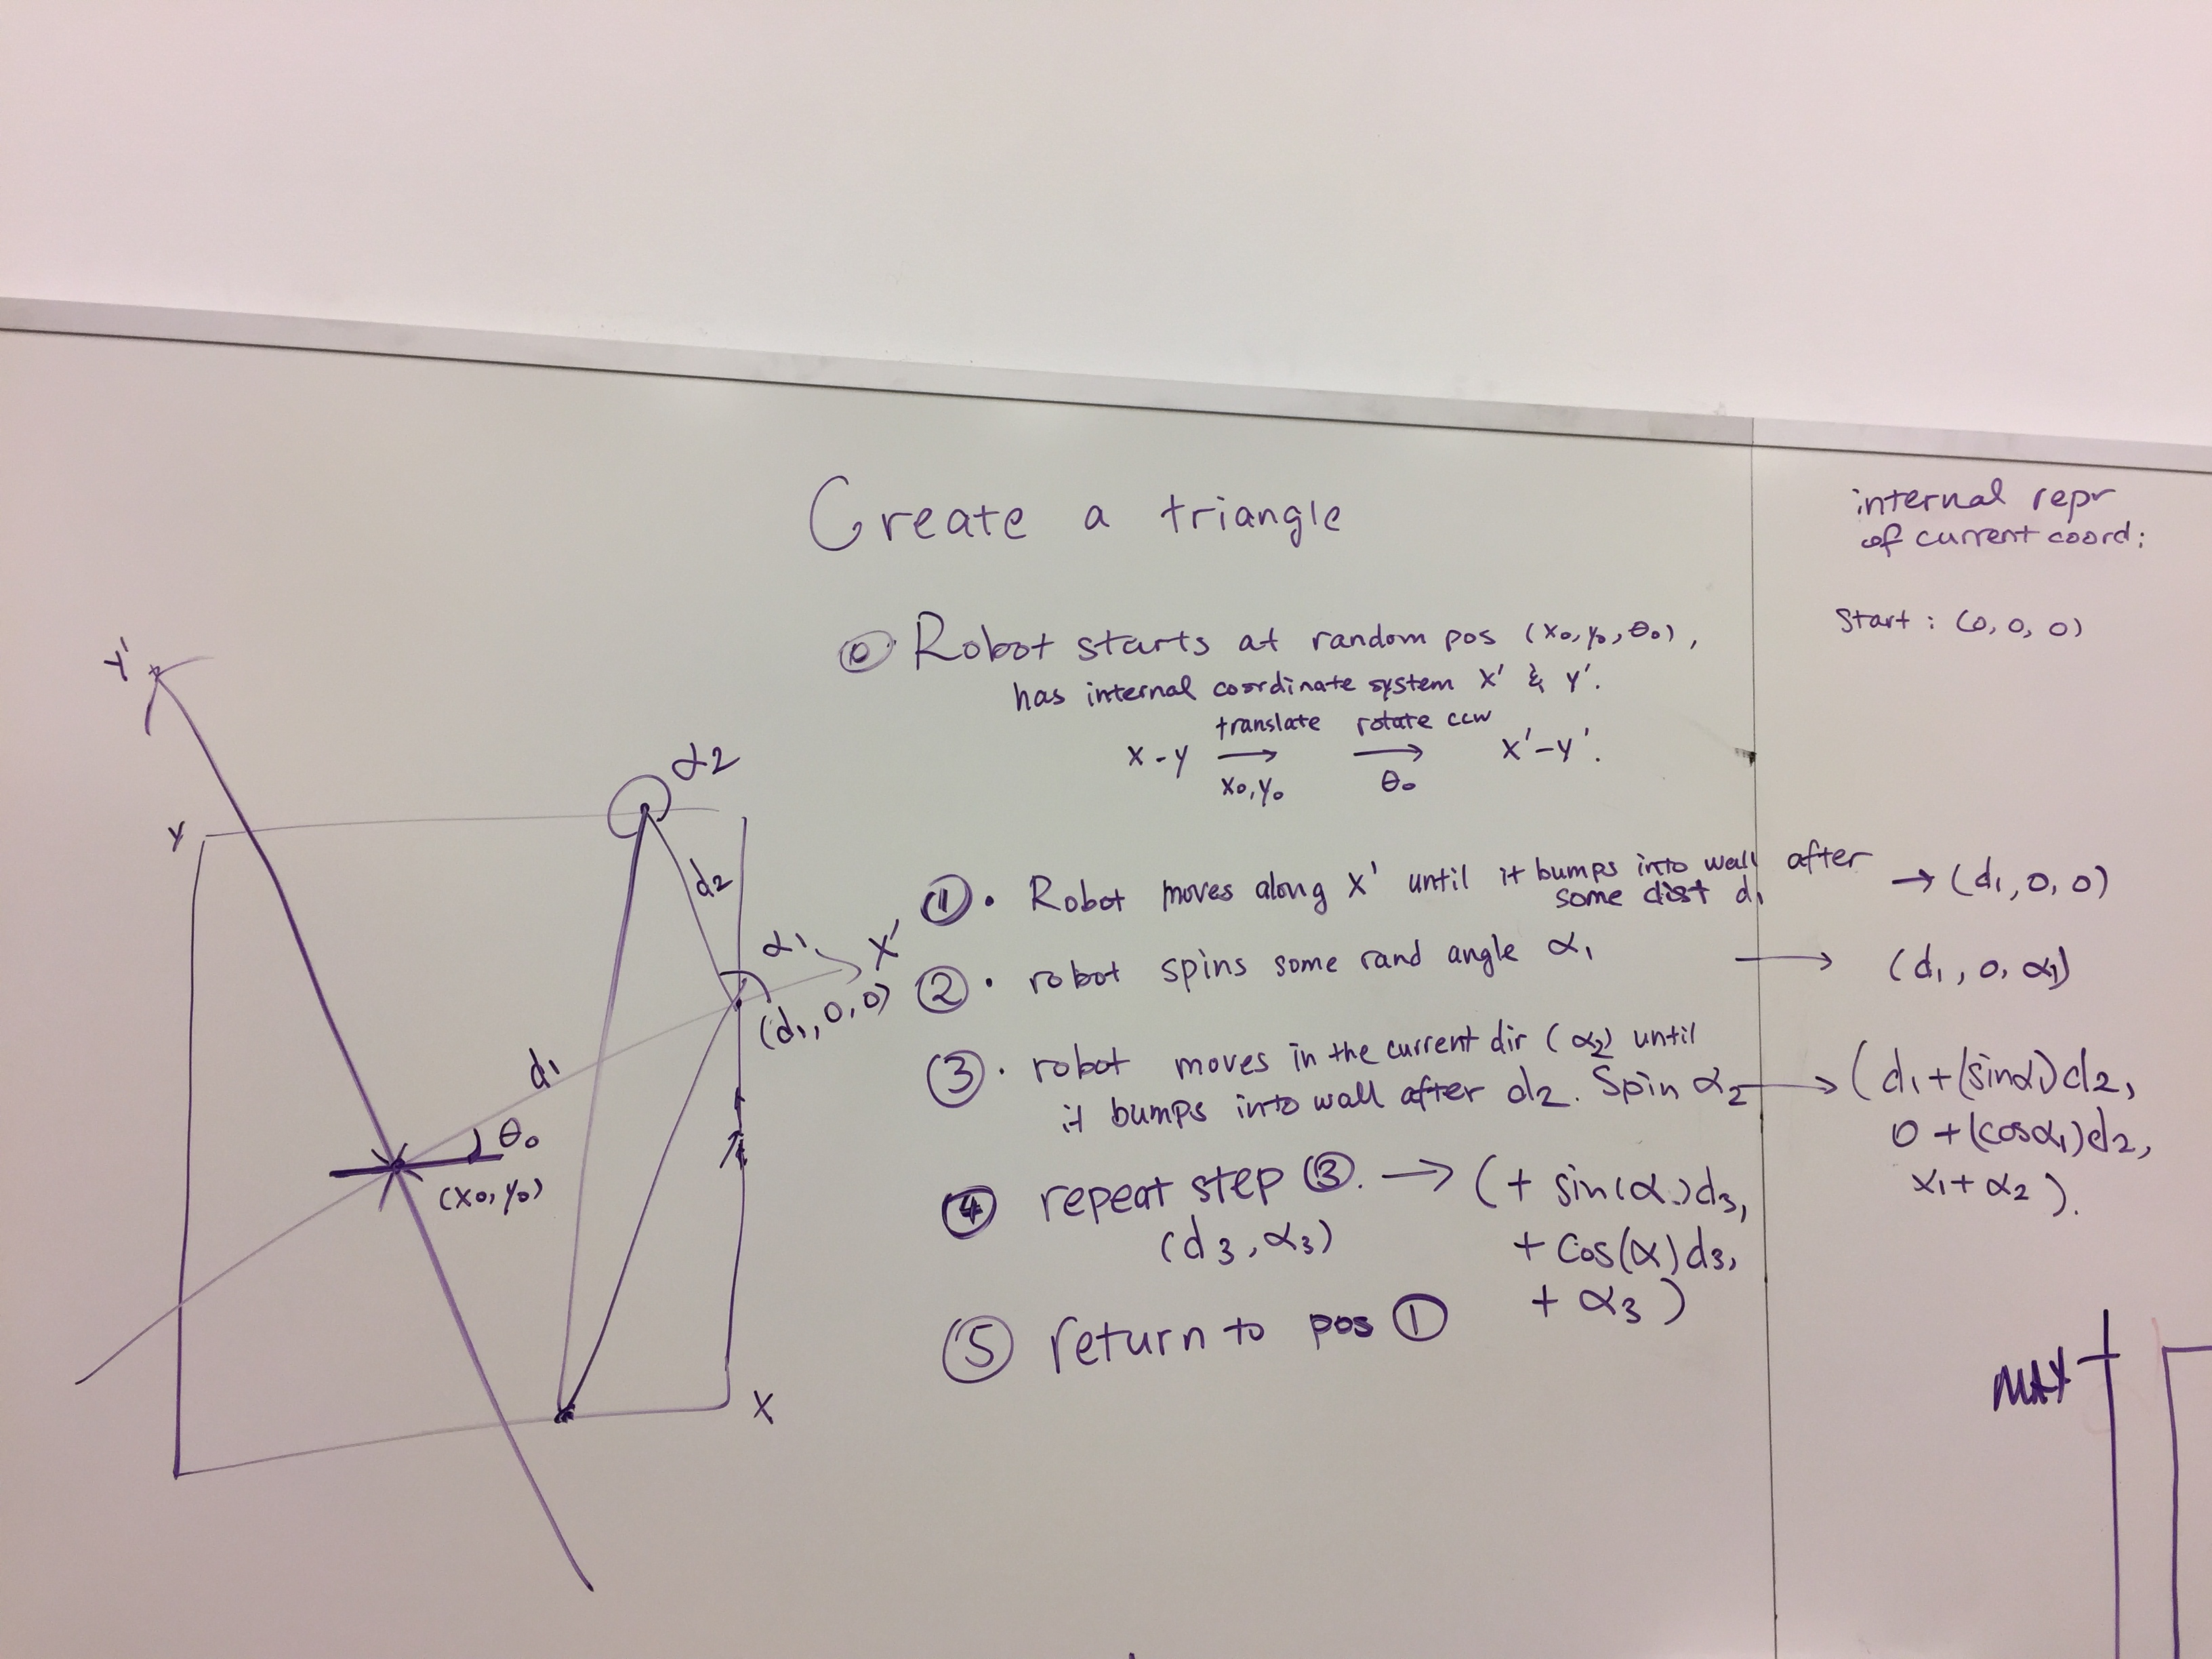 Create a triangle
internal repr
of current coord:
Start : (0, 0, 0)
⓪ Robot starts at random pos (x₀, y₀, θ₀),
has internal coordinate system X' & Y'.
translate rotate ccw
X-Y → → X'-Y'.
x₀, y₀ θ₀
① • Robot moves along X' until it bumps into wall after
some dist d₁
→ (d₁, 0, 0)
② • robot spins some rand angle α₁ → (d₁, 0, α₁)
③ • robot moves in the current dir (α₂) until
it bumps into wall after d₂. Spin α₂ → (d₁+(sinα₁)d₂,
0+(cosα₁)d₂,
x₁+α₂).
④ repeat step ③. → (+ sin(α.)d₃,
(d₃, α₃) + cos(α)d₃,
+ α₃)
⑤ return to pos ①
Y'
α2
Y
d2
α1
X'
(d₁, 0, 0)
d1
θ₀
(x₀, y₀)
X
MAX